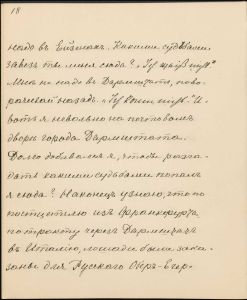 18
надо въ Ейзенах. Какими судьбами
завезъ ты меня сюда? „Ich
Мнѣ не надо въ Дармштатъ, пово-
рачивай назадъ. „Ich kann nicht." И
вотъ я невольно на почтовомъ
дворѣ города Дармштата.
Долго добивался я, чтобъ разга-
дать какими судьбами попалъ
я сюда? Наконецъ узналъ, что по
поступилъ изъ Франкфурта,
по тракту черезъ Дармштатъ
въ Италію, лошади были зака-
заны для Русскаго Оберъ-егер-